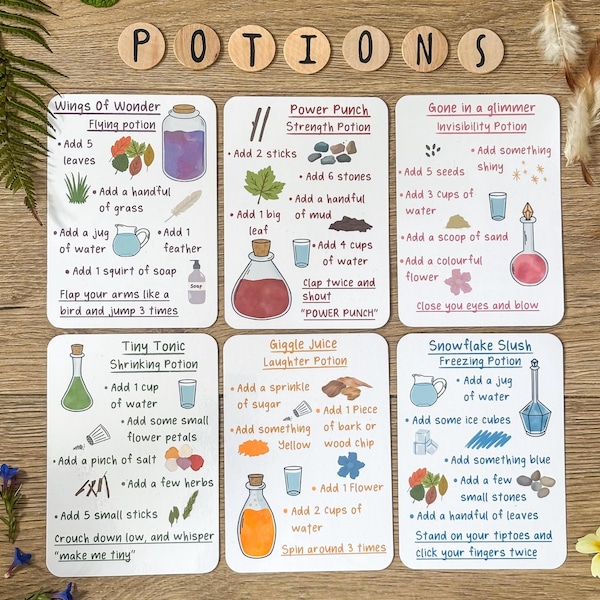 POTIONS
Wings Of Wonder
Flying potion
• Add 5
leaves
• Add a handful
of grass
• Add a jug
of water
• Add 1
feather
• Add 1 squirt of soap
Soap
Flap your arms like a
bird and jump 3 times
Power Punch
Strength Potion
• Add 2 sticks
• Add 6 stones
• Add a handful
of mud
• Add 1 big
leaf
• Add 4 cups
of water
Clap twice and
shout
"POWER PUNCH"
Gone in a glimmer
Invisibility Potion
• Add something
shiny
• Add 5 seeds
• Add 3 Cups of
water
• Add a scoop of sand
• Add a colourful
flower
Close you eyes and blow
Tiny Tonic
Shrinking Potion
• Add 1 cup
of water
• Add some small
flower petals
• Add a pinch of salt
• Add a few herbs
• Add 5 small sticks
Crouch down low, and whisper
"make me tiny"
Giggle Juice
Laughter Potion
• Add a sprinkle
of sugar
• Add 1 Piece
of bark or
wood chip
• Add something
Yellow
• Add 1 Flower
• Add 2 cups of
water
Spin around 3 times
Snowflake Slush
Freezing Potion
• Add a jug
of water
• Add some ice cubes
• Add something blue
• Add a few
small stones
• Add a handful of leaves
Stand on your tiptoes and
click your fingers twice